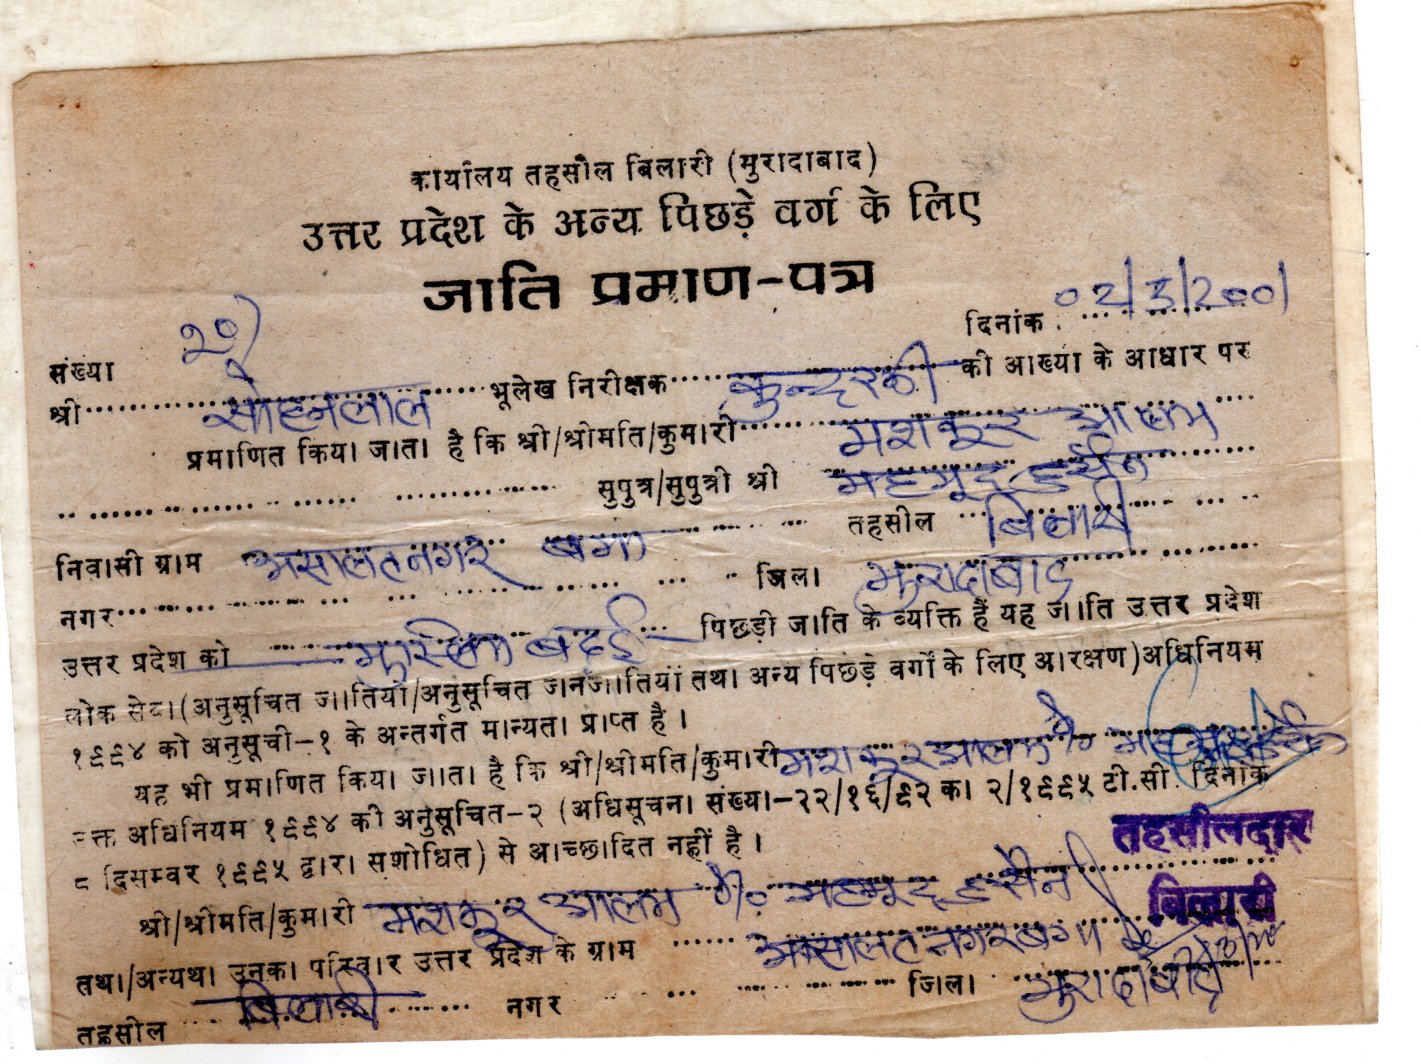 कार्यालय तहसील बिलारी (मुरादाबाद)
उत्तर प्रदेश के अन्य पिछड़े वर्ग के लिए
जाति प्रमाण-पत्र
दिनांक 02/3/2001
संख्या
श्री सोहनलाल भूलेख निरीक्षक कुन्दरकी की आख्या के आधार पर
प्रमाणित किया जाता है कि श्री/श्रीमति/कुमारी मशकूर आलम
सुपुत्र/सुपुत्री श्री महमूद हुसैन
निवासी ग्राम असालतनगर बगा तहसील बिलारी
नगर जिला मुरादाबाद
उत्तर प्रदेश को मुस्लिम बढई पिछड़ी जाति के व्यक्ति हैं यह जाति उत्तर प्रदेश
लोक सेवा (अनुसूचित जातियों/अनुसूचित जनजातियां तथा अन्य पिछड़े वर्गों के लिए आरक्षण) अधिनियम
१९९४ को अनुसूची-१ के अन्तर्गत मान्यता प्राप्त है ।
यह भी प्रमाणित किया जाता है कि श्री/श्रीमति/कुमारी मशकूर आलम
क्त अधिनियम १९९४ की अनुसूचित-२ (अधिसूचना संख्या-२२/१६/९२ का २/१९९५ टी.सी. दिनांक
८ दिसम्बर १९९५ द्वारा सशोधित) से आच्छादित नहीं है ।
तहसीलदार
बिलारी
श्री/श्रीमति/कुमारी मशकूर आलम पु० महमूद हुसैन
तथा/अन्यथा उनका परिवार उत्तर प्रदेश के ग्राम असालतनगर बगा
तहसील बिलारी नगर जिला मुरादाबाद